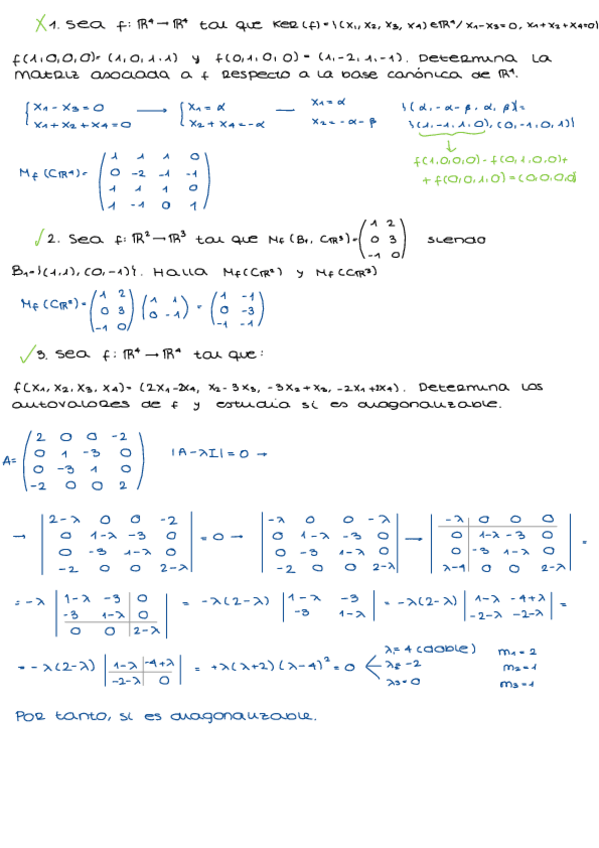 X 1. Sea f: ℝ⁴ → ℝ⁴ tal que Ker(f) = {(x₁, x₂, x₃, x₄) ∈ ℝ⁴ / x₁-x₃=0, x₁+x₂+x₄=0}
f(1,0,0,0) = (1,0,1,1) y f(0,1,0,0) = (1,-2,1,-1). Determina la
matriz asociada a f respecto a la base canónica de ℝ⁴.
{x₁-x₃=0 → {x₁=α — x₁=α {(α,-α-β,α,β)}=
x₁+x₂+x₄=0 x₂+x₄=-α x₂=-α-β {(1,-1,1,0),(0,-1,0,1)}
f(1,0,0,0)-f(0,1,0,0)+
+f(0,0,1,0)=(0,0,0,0)
Mf(Cℝ⁴)= (1 1 1 0
0 -2 -1 -1
1 1 1 0
1 -1 0 1)
✓ 2. Sea f: ℝ² → ℝ³ tal que Mf(B₁, Cℝ³) = (1 2
0 3
-1 0) siendo
B₁={(1,1),(0,-1)}. Halla Mf(Cℝ²) y Mf(Cℝ³)
Mf(Cℝ²)= (1 2
0 3
-1 0) (1 1
0 -1) = (1 -1
0 -3
-1 -1)
✓ 3. Sea f: ℝ⁴ → ℝ⁴ tal que:
f(x₁, x₂, x₃, x₄) = (2x₁-2x₄, x₂-3x₃, -3x₂+x₃, -2x₁+2x₄). Determina los
autovalores de f y estudia si es diagonalizable.
A= (2 0 0 -2
0 1 -3 0
0 -3 1 0
-2 0 0 2) |A-λI|=0 →
→ |2-λ 0 0 -2
0 1-λ -3 0
0 -3 1-λ 0
-2 0 0 2-λ| =0 → |-λ 0 0 -λ
0 1-λ -3 0
0 -3 1-λ 0
-2 0 0 2-λ| → |-λ 0 0 0
0 1-λ -3 0
0 -3 1-λ 0
λ-4 0 0 2-λ| =
= -λ |1-λ -3 0
-3 1-λ 0
0 0 2-λ| = -λ(2-λ) |1-λ -3
-3 1-λ| = -λ(2-λ) |1-λ -4+λ
-2-λ -2-λ| =
= -λ(2-λ) |1-λ -4+λ
-2-λ 0| = +λ(λ+2)(λ-4)²=0 λ₁=4 (doble) m₁=2
λ₂=-2 m₂=1
λ₃=0 m₃=1
Por tanto, sí es diagonalizable.